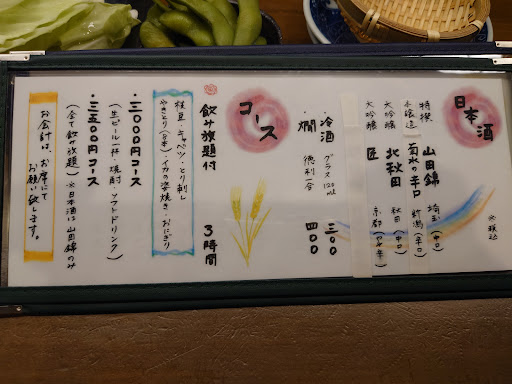 日本酒
※税込
特撰 山田錦 埼玉(中口)
本醸造 菊水の辛口 新潟(辛口)
大吟醸 北秋田 秋田(中口)
大吟醸 匠 京都(やや辛)
・冷酒 グラス120mL 三〇〇
・燗 徳利一合 四〇〇
コース
飲み放題付 3時間
枝豆・キャベツ・とり刺し
やきとり(8本)・イカの姿焼き・おにぎり
・三〇〇〇円コース
(生ビール一杯・焼酎・ソフトドリンク)
・三五〇〇円コース
(全て飲み放題)※日本酒は山田錦のみ
お会計は、お席にて
お願い致します。